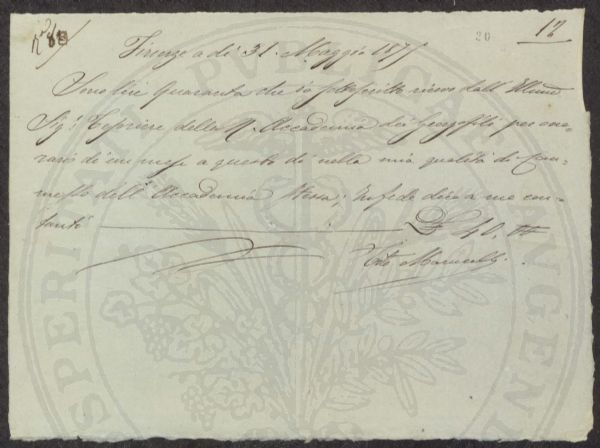 20
12
Firenze a dì 31. Maggio 1877
Sono Lire Quaranta che io sottoscritto ricevo dall' Illmo
Sig.r Tesoriere della R. Accademia dei Georgofili, per ono-
rario di un mese a questo dì nella mia qualità di Com-
messo dell' Accademia stessa; In fede dico a me con-
tanti
L 40.
Marucelli